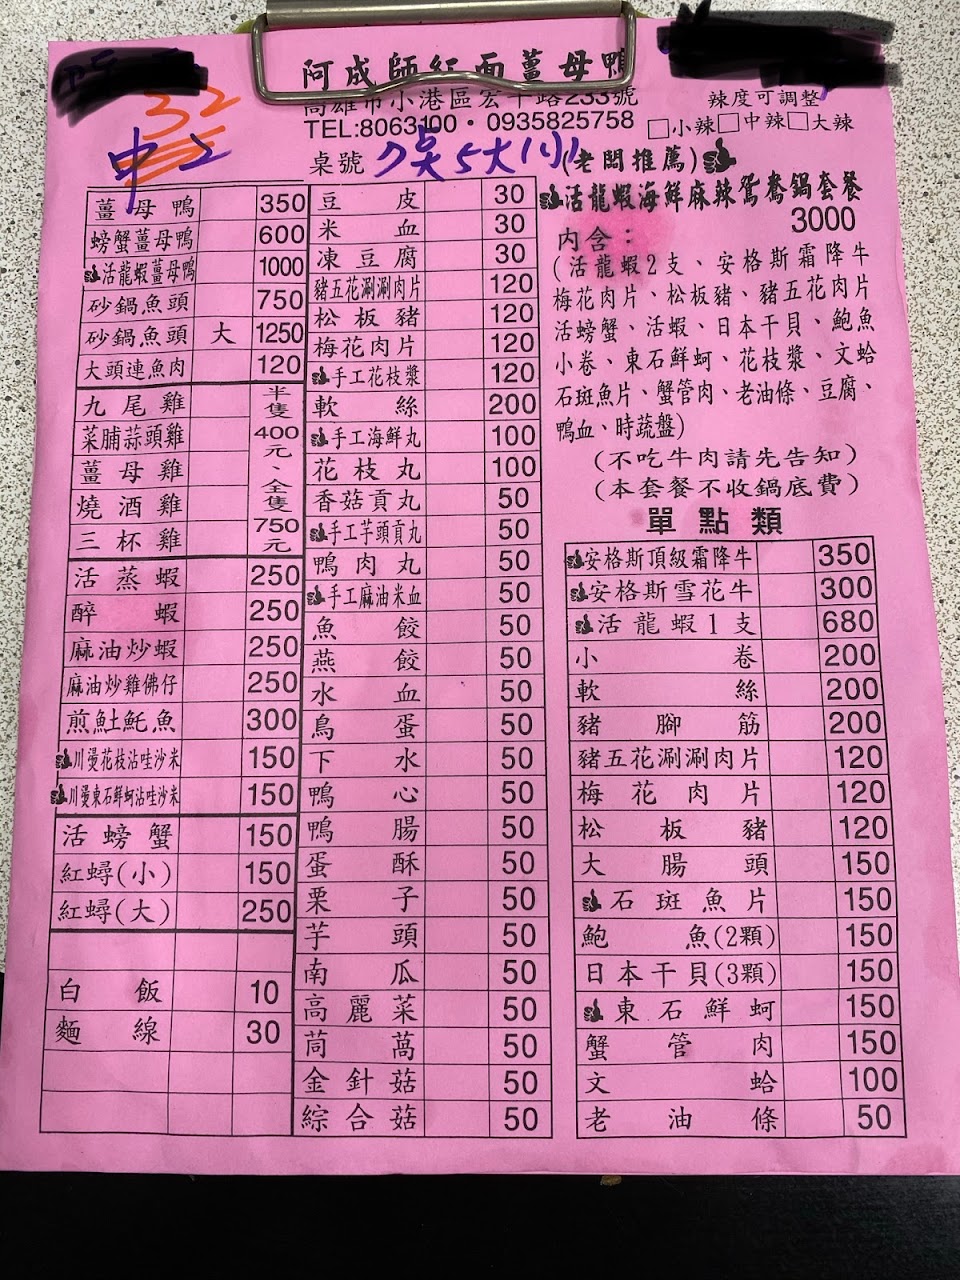 阿成師紅面薑母鴨
高雄市小港區宏平路233號
TEL:8063100・0935825758
辣度可調整
□小辣□中辣□大辣
32
中2
桌號 吳5大1小
(老闆推薦)
薑母鴨 350
螃蟹薑母鴨 600
活龍蝦薑母鴨 1000
砂鍋魚頭 750
砂鍋魚頭 大 1250
大頭連魚肉 120
九尾雞
菜脯蒜頭雞
薑母雞
燒酒雞
三杯雞
半隻400元、全隻750元
活蒸蝦 250
醉蝦 250
麻油炒蝦 250
麻油炒雞佛仔 250
煎虱目魚 300
川燙花枝沾哇沙米 150
川燙東石鮮蚵沾哇沙米 150
活螃蟹 150
紅蟳(小) 150
紅蟳(大) 250
白飯 10
麵線 30
豆皮 30
米血 30
凍豆腐 30
豬五花涮涮肉片 120
松板豬 120
梅花肉片 120
手工花枝漿 120
軟絲 200
手工海鮮丸 100
花枝丸 100
香菇貢丸 50
手工芋頭貢丸 50
鴨肉丸 50
手工麻油米血 50
魚餃 50
燕餃 50
水血 50
鳥蛋 50
下水 50
鴨心 50
鴨腸 50
蛋酥 50
栗子 50
芋頭 50
南瓜 50
高麗菜 50
茼萵 50
金針菇 50
綜合菇 50
活龍蝦海鮮麻辣鴛鴦鍋套餐
3000
內含：
(活龍蝦2支、安格斯霜降牛
梅花肉片、松板豬、豬五花肉片
活螃蟹、活蝦、日本干貝、鮑魚
小卷、東石鮮蚵、花枝漿、文蛤
石斑魚片、蟹管肉、老油條、豆腐、
鴨血、時蔬盤)
(不吃牛肉請先告知)
(本套餐不收鍋底費)
單點類
安格斯頂級霜降牛 350
安格斯雪花牛 300
活龍蝦1支 680
小卷 200
軟絲 200
豬腳筋 200
豬五花涮涮肉片 120
梅花肉片 120
松板豬 120
大腸頭 150
石斑魚片 150
鮑魚(2顆) 150
日本干貝(3顆) 150
東石鮮蚵 150
蟹管肉 150
文蛤 100
老油條 50